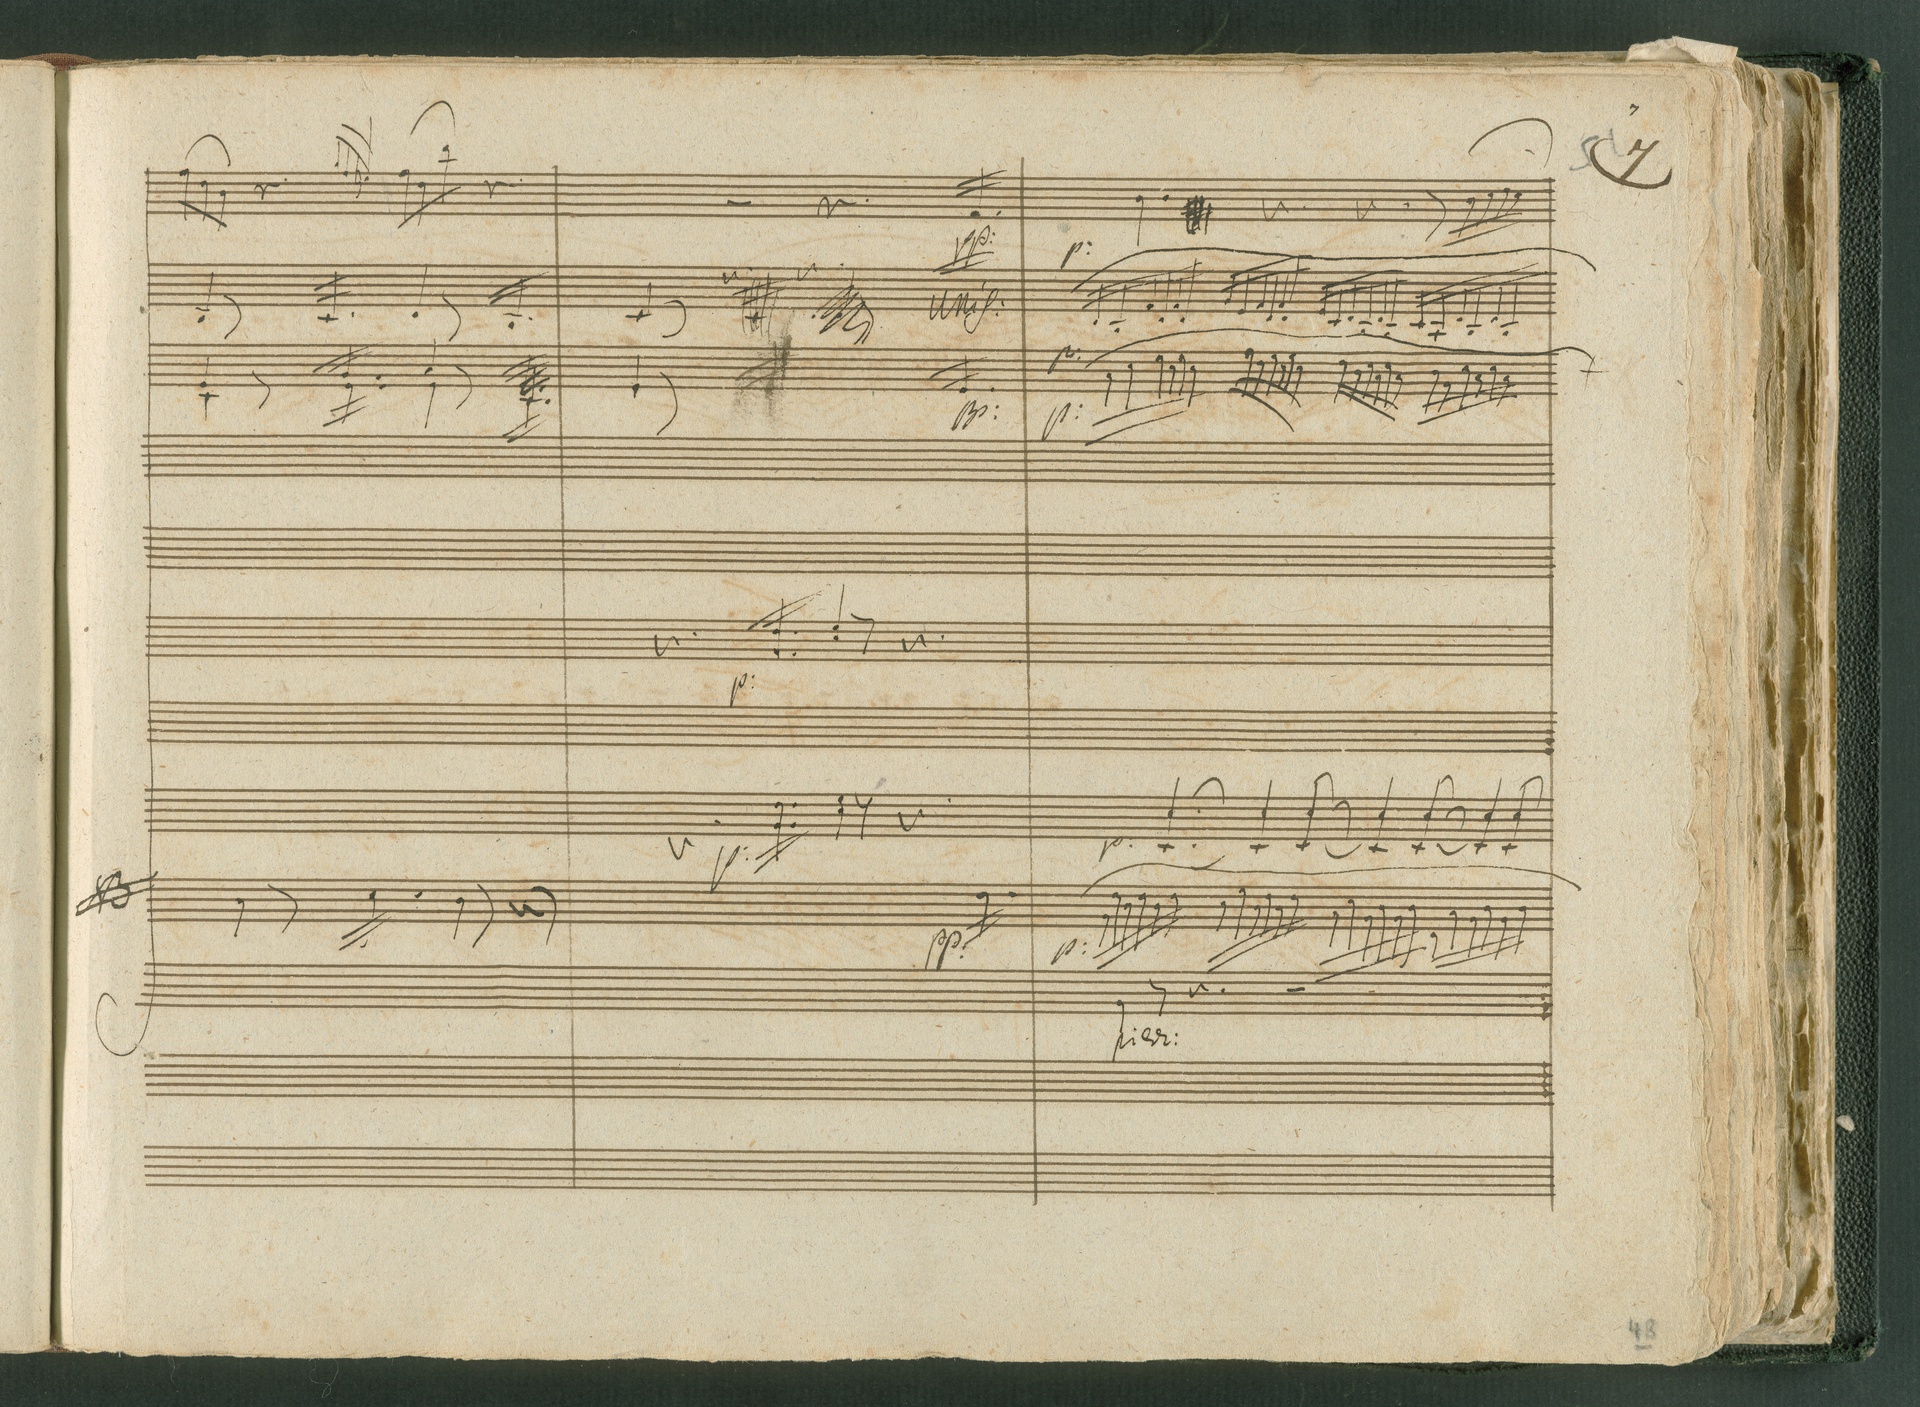 7
pp:
p:
unis:
p:
pp:
p:
p:
p:
p:
pp:
p:
48